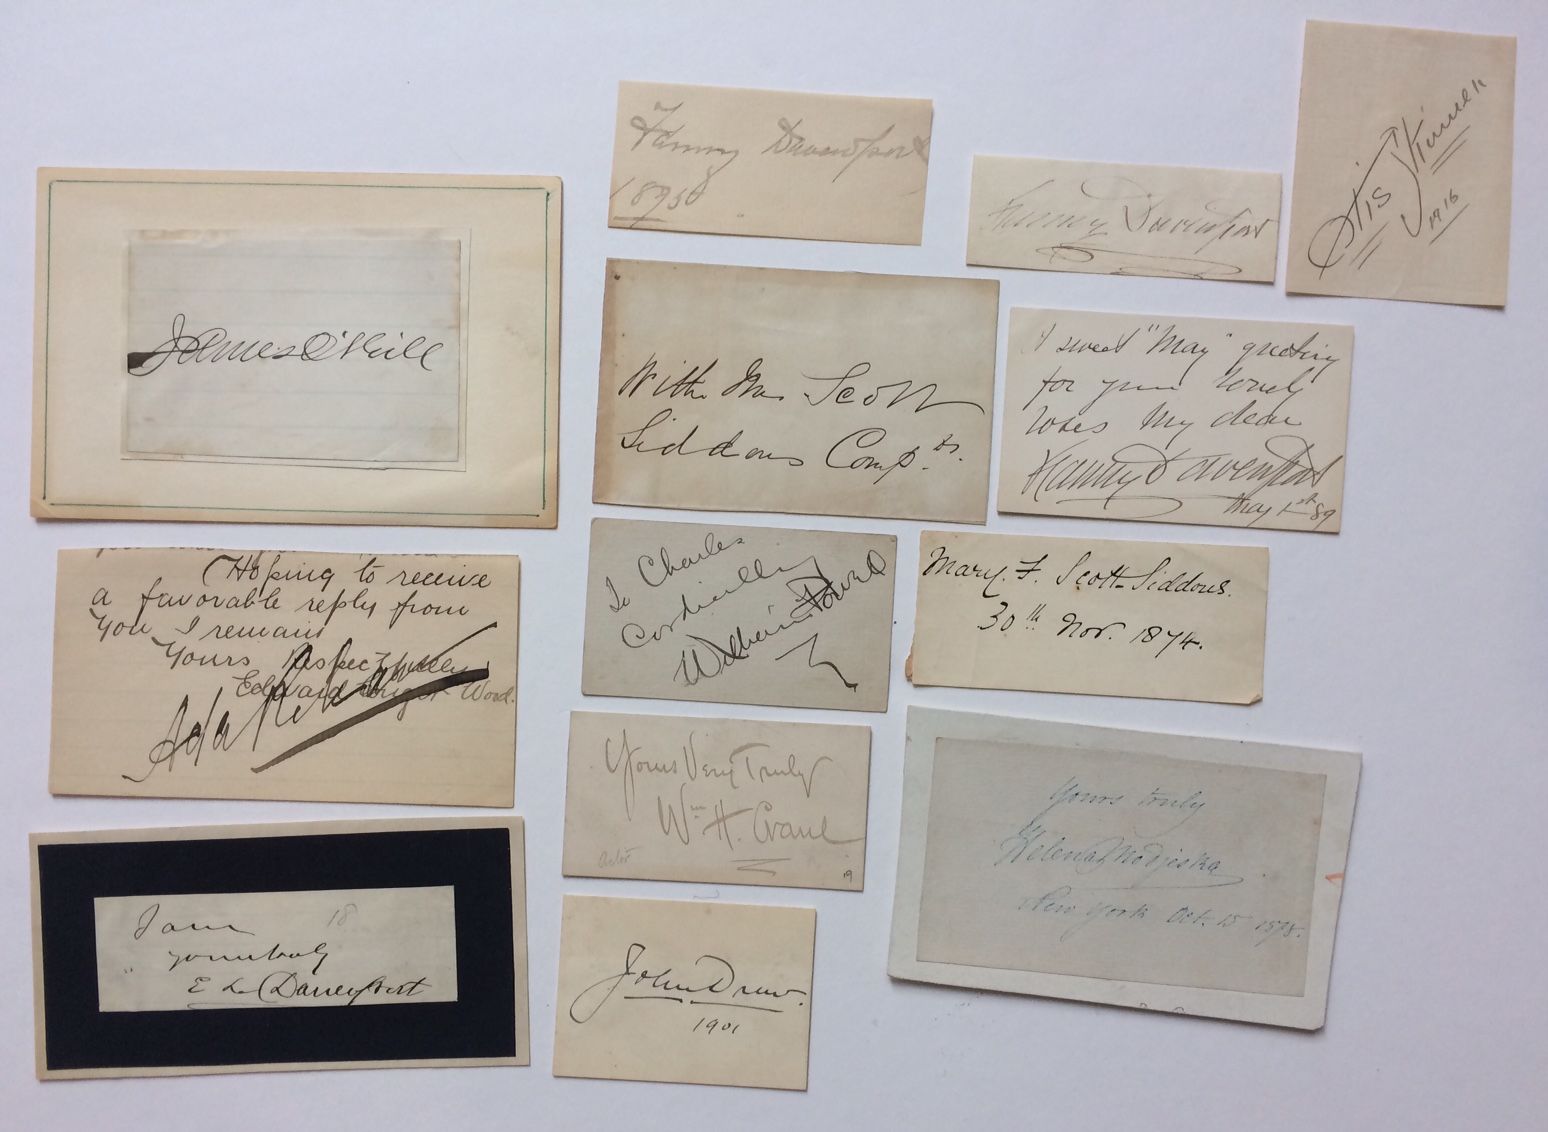 James O'Neill
Hoping to receive
a favorable reply from
you I remain
Yours respectfully
Edward Wright Wood.
Ada Rehan
I am
yours truly
E L Davenport
18
Fanny Davenport
1895
With Mrs Scott
Siddons Compts.
To Charles
Cordially
William Powell
Yours Very Truly
Wm H. Crane
actor
19
John Drew.
1901
Fanny Davenport
Otis Skinner
1916
A sweet "May" greeting
for your lovely
roses My dear
Fanny Davenport
May 1st 89
Mary. F. Scott-Siddons.
30th Nov. 1874.
Yours truly
Helena Modjeska
New York Oct. 15 1878.